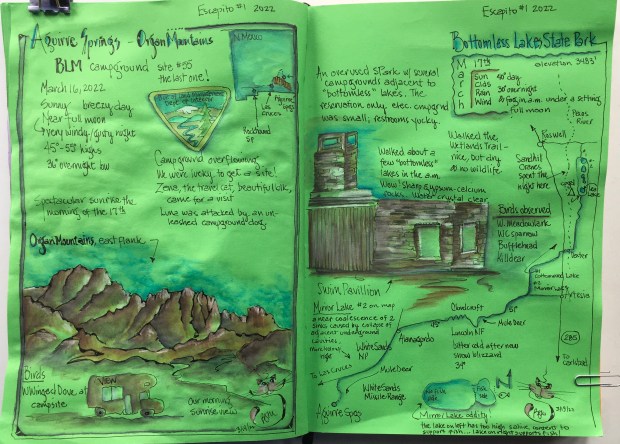 Escapito #1 2022
Aguirre Springs - Organ Mountains
BLM campground site #55
the last one!
March 16, 2022
Sunny breezy day
Near full moon
Very windy/gusty night
45°-55° highs
36° overnight low
Spectacular sunrise the
morning of the 17th
N. Mexico
Las
Cruces
Aguirre
Springs
Rockhound
SP
Campground overflowing
We were lucky to get a site!
Zena, the travel cat, beautiful blk,
came for a visit
Luna was attacked by an un-
leashed campground dog.
Organ Mountains, east flank
Birds
W Winged Dove at
campsite
VIEW
Our morning
sunrise view
Escapito #1 2022
Bottomless Lakes State Park
elevation 3483'
March
17th
Sun
Clds
Rain
Wind
30° overnight
in a.m. under a setting,
full moon
An overused SPark w/ several
campgrounds adjacent to
"bottomless" lakes. The
reservation only elec. campgrnd
was small; restrooms yucky.
Walked the
Wetlands Trail -
nice, but dry
no wildlife
Walked about a
few "bottomless"
lakes in the a.m.
Wow! Sharp gypsum-calcium
rocks. Water crystal clear
Pecos
River
Roswell
Sandhill
Cranes
spent the
night here
Lea
Lake
Birds observed
W. meadowlark
WC sparrow
Bufflehead
Killdeer
Dexter
#1
Cottonwood Lake
#2
Mirror Lake
Artesia
285
to
Carlsbad
Swim Pavillion
Mirror Lake #2 on map
a near coalescence of 2
sinks caused by collapse of
adjacent underground
cavities,
White Sands
NP
To Las Cruces
Alamogordo
Cloudcroft
Mule Deer
Lincoln NF
bitter cold afternoon
snow blizzard
34°
Mule Deer
White Sands
Missile Range
Aguirre Spgs
Mirror Lake oddity!
the lake on left has too high saline content to
support fish... lake on right supports fish!